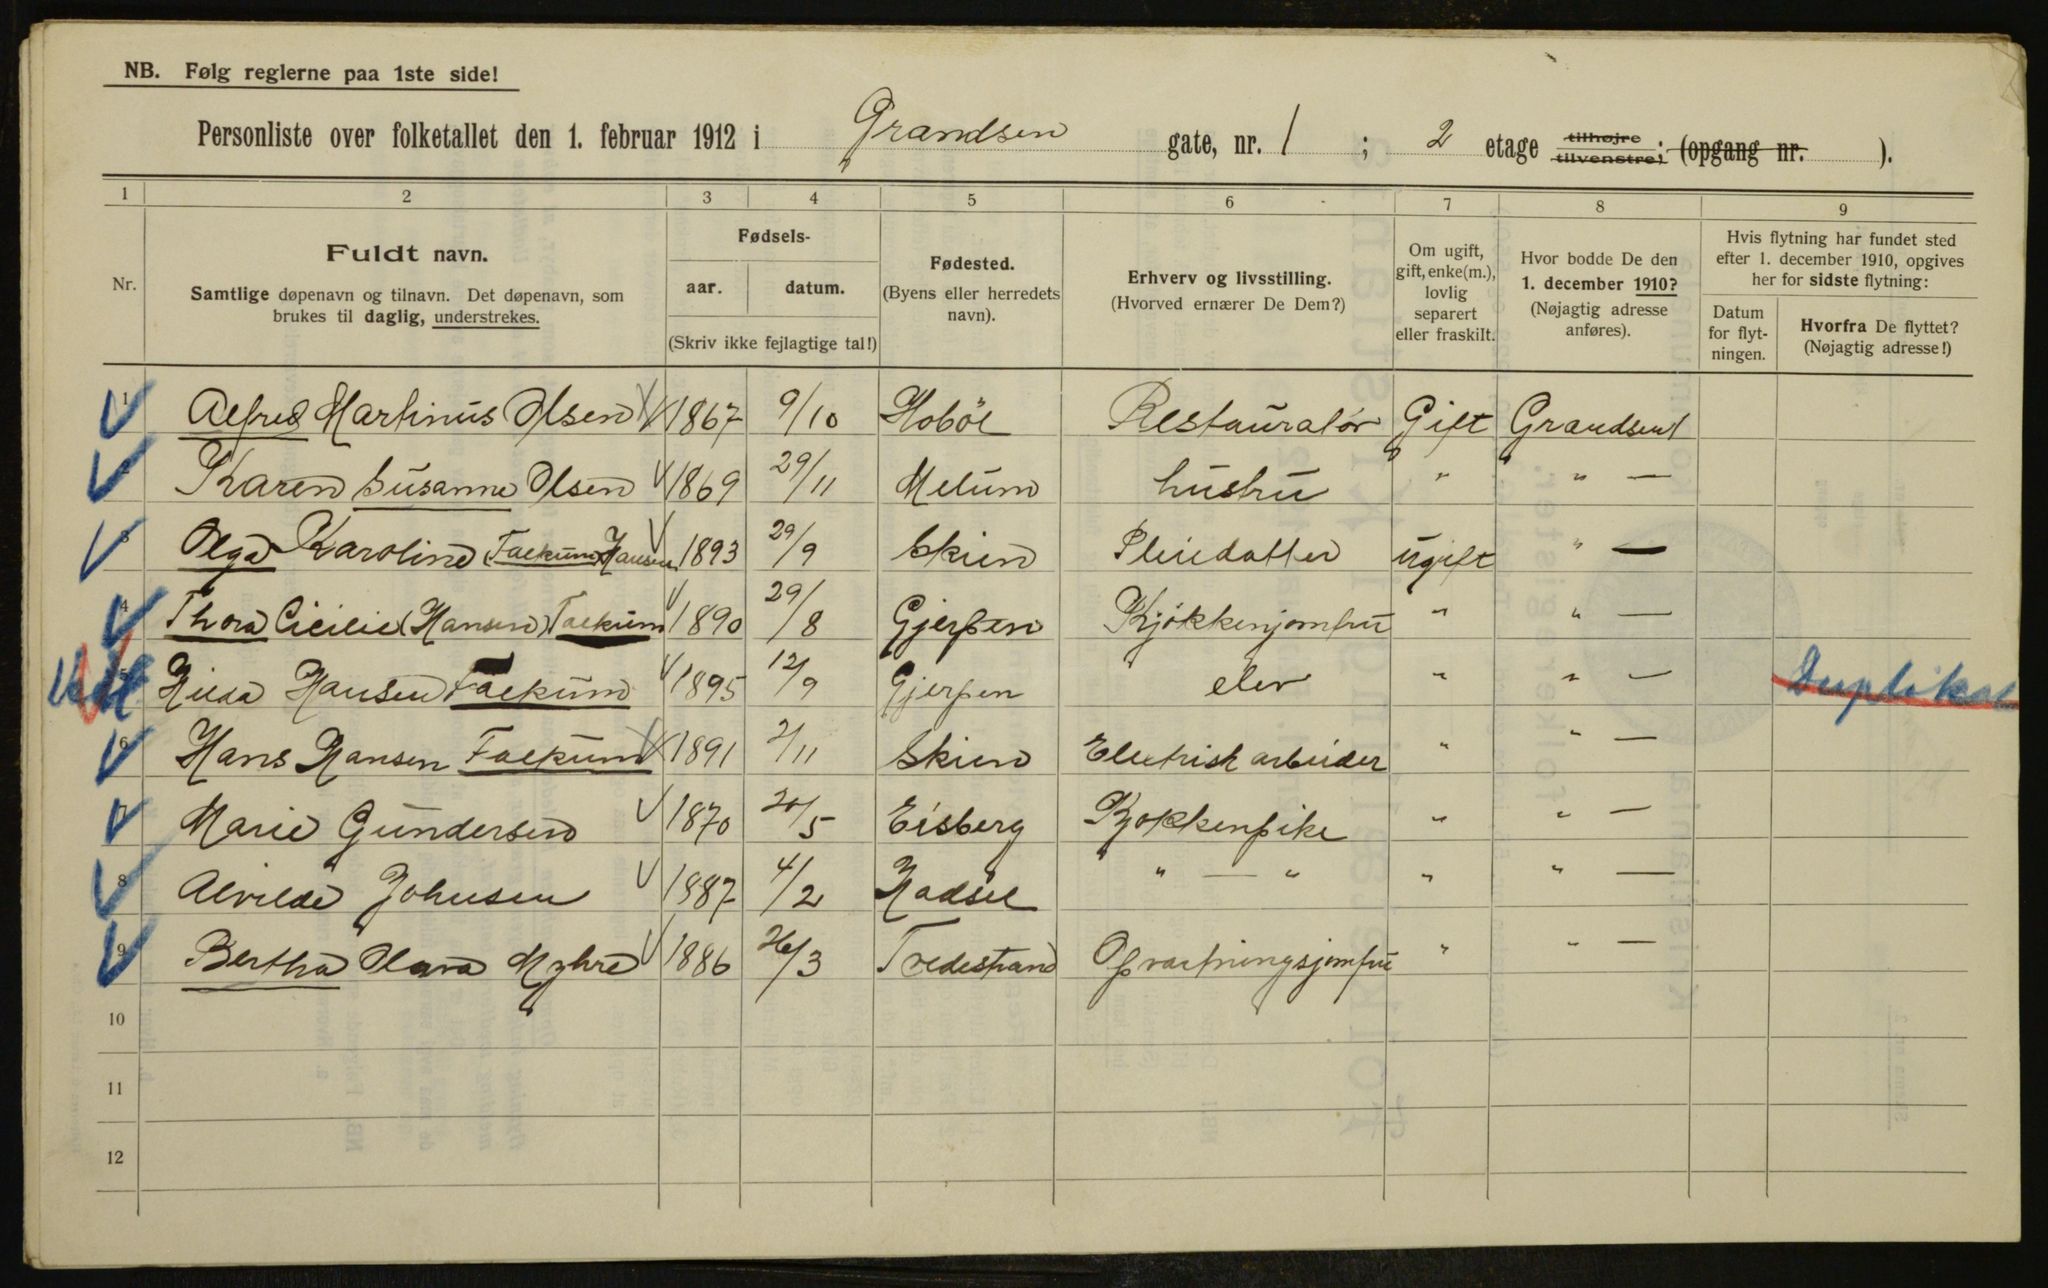 NB. Følg reglerne paa 1ste side!
Personliste over folketallet den 1. februar 1912 i Grandsen gate, nr. 1 ; 2 etage tilhøjre tilvenstre; (opgang nr. ).
1 2 3 4 5 6 7 8 9
Nr.
Fuldt navn.
Samtlige døpenavn og tilnavn. Det døpenavn, som
brukes til daglig, understrekes.
Fødsels-
aar. datum.
(Skriv ikke fejlagtige tal!)
Fødested.
(Byens eller herredets
navn).
Erhverv og livsstilling.
(Hvorved ernærer De Dem?)
Om ugift,
gift, enke(m.),
lovlig
separert
eller fraskilt.
Hvor bodde De den
1. december 1910?
(Nøjagtig adresse
anføres).
Hvis flytning har fundet sted
efter 1. december 1910, opgives
her for sidste flytning:
Datum
for flyt-
ningen.
Hvorfra De flyttet?
(Nøjagtig adresse!)
1 Alfred Martinus Olsen 1867 9/10 Hobøl Restauratør Gift Grandsen 1
2 Karen Susanne Olsen 1869 29/11 Melum hustru " " —
3 Olga Karoline (Faekum) Hansen 1893 29/9 Skien Pleiedatter ugift " —
4 Thora Cicilie (Hansen) Faekum 1890 29/8 Gjerpen Kjøkkenjomfru " " —
5 Hilda Hansen Faekum 1895 12/9 Gjerpen elev " " — Duplikat
6 Hans Hansen Faekum 1891 2/11 Skien Electrisk arbeider " " —
7 Marie Gundersen 1870 20/5 Eisberg Kjøkkenpike " " —
8 Alvilde Johnsen 1887 4/2 Hadsel " — " " " —
9 Bertha Olava Myhre 1886 26/3 Tvedestrand Opvartningsjomfru " " —
10
11
12